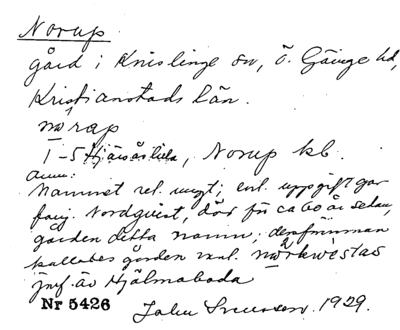 Norup
gård i Knislinge sn, Ö. Göinge hd,
Kristianstads län.
nørap
1-5 Hjärsåslilla, Norup kb.
Anm:
Namnet rel. ungt; enl. uppgift gav
fanj. Nordquist, död för ca 60 år sedan,
gården detta namn; dessförinnan
kallades gården vanl.
jmf. äv Hjälmaboda
Nr 5426
John Svensson. 1929.